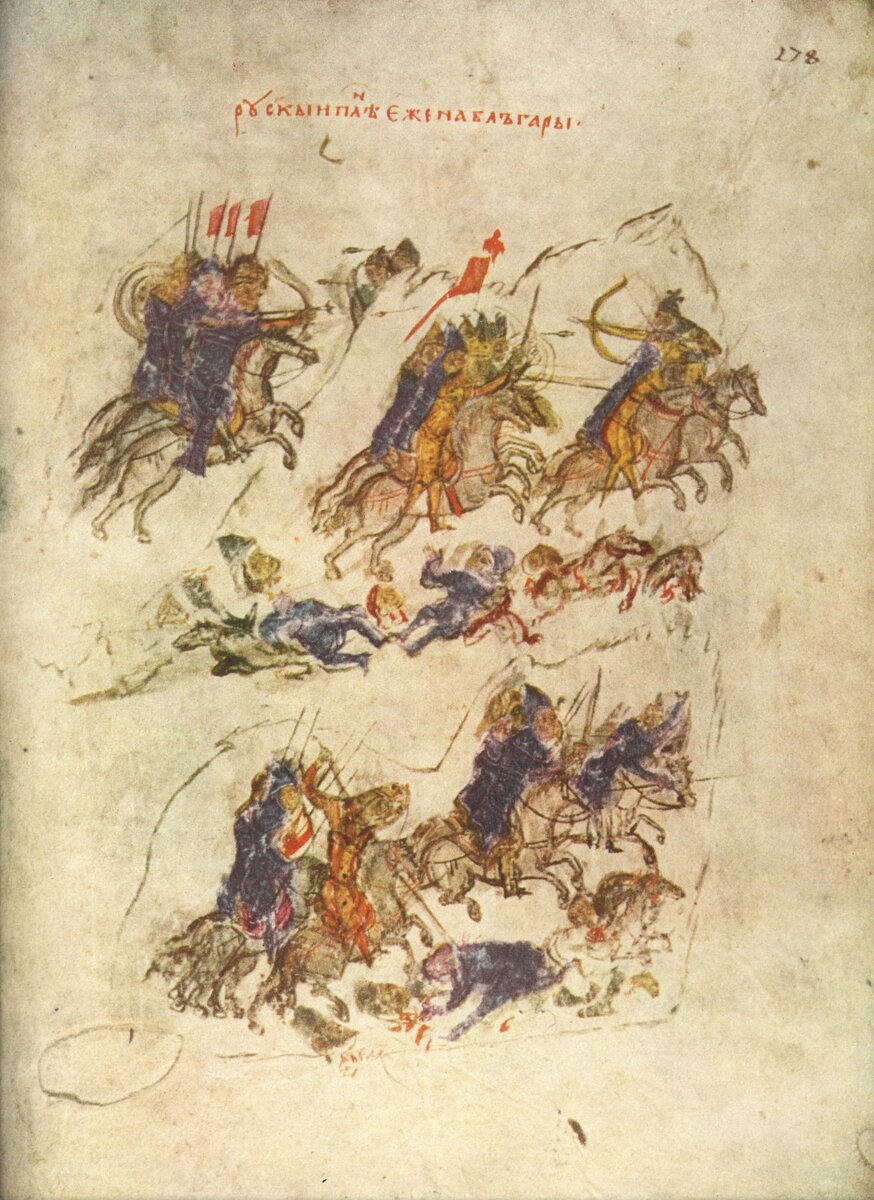 178
рꙋскыи плѣⷩ еже на блъгары·